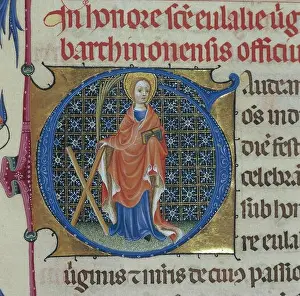 In honore sce eulalie uig
barchinonensis officiu
autem
os in d
die fest
celebra
sub hon
re eulal
uirginis et mris de cuius passio